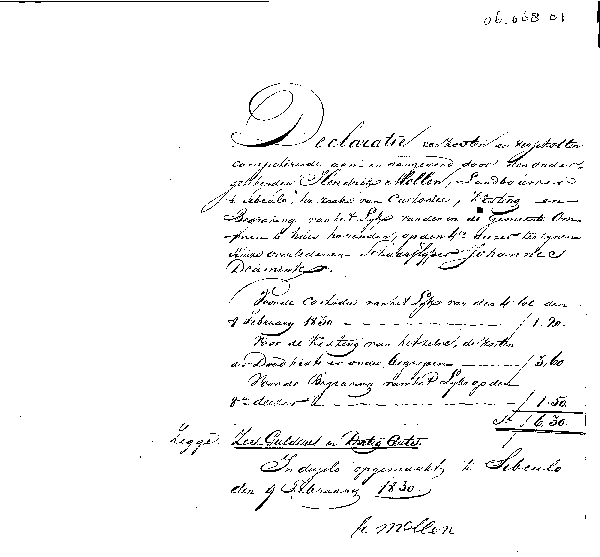 06.668 01
Declaratie van kosten en verschotten
competerende aan en aangevend door den onder
getekenden Hendrik Mollen, Landbouwer
te Sibculo, ter zake van Custodie, Kisting en
Begraving van het Lijk van den in de Gemeente Om-
men te huis horenden, op den 4en dezer ten zijnen
Huize overledenen Schaarslijper Johannes
Deamink.
Voor de Custodie van het Lijk van den 4 tot den
9 February 1830 ƒ 1.20.
Voor de Kisting van hetzelve, de kosten
der Doodkist er onder begrepen ƒ 3,60
Voor de Begraving van het Lijk op den
8en dezer ƒ 1.50.
Sa ƒ 6.30.
Zegge Zes Guldens en Dertig Cents.
In duplo opgemaakt, te Sibculo
den 9 February 1830.
H. Mollen